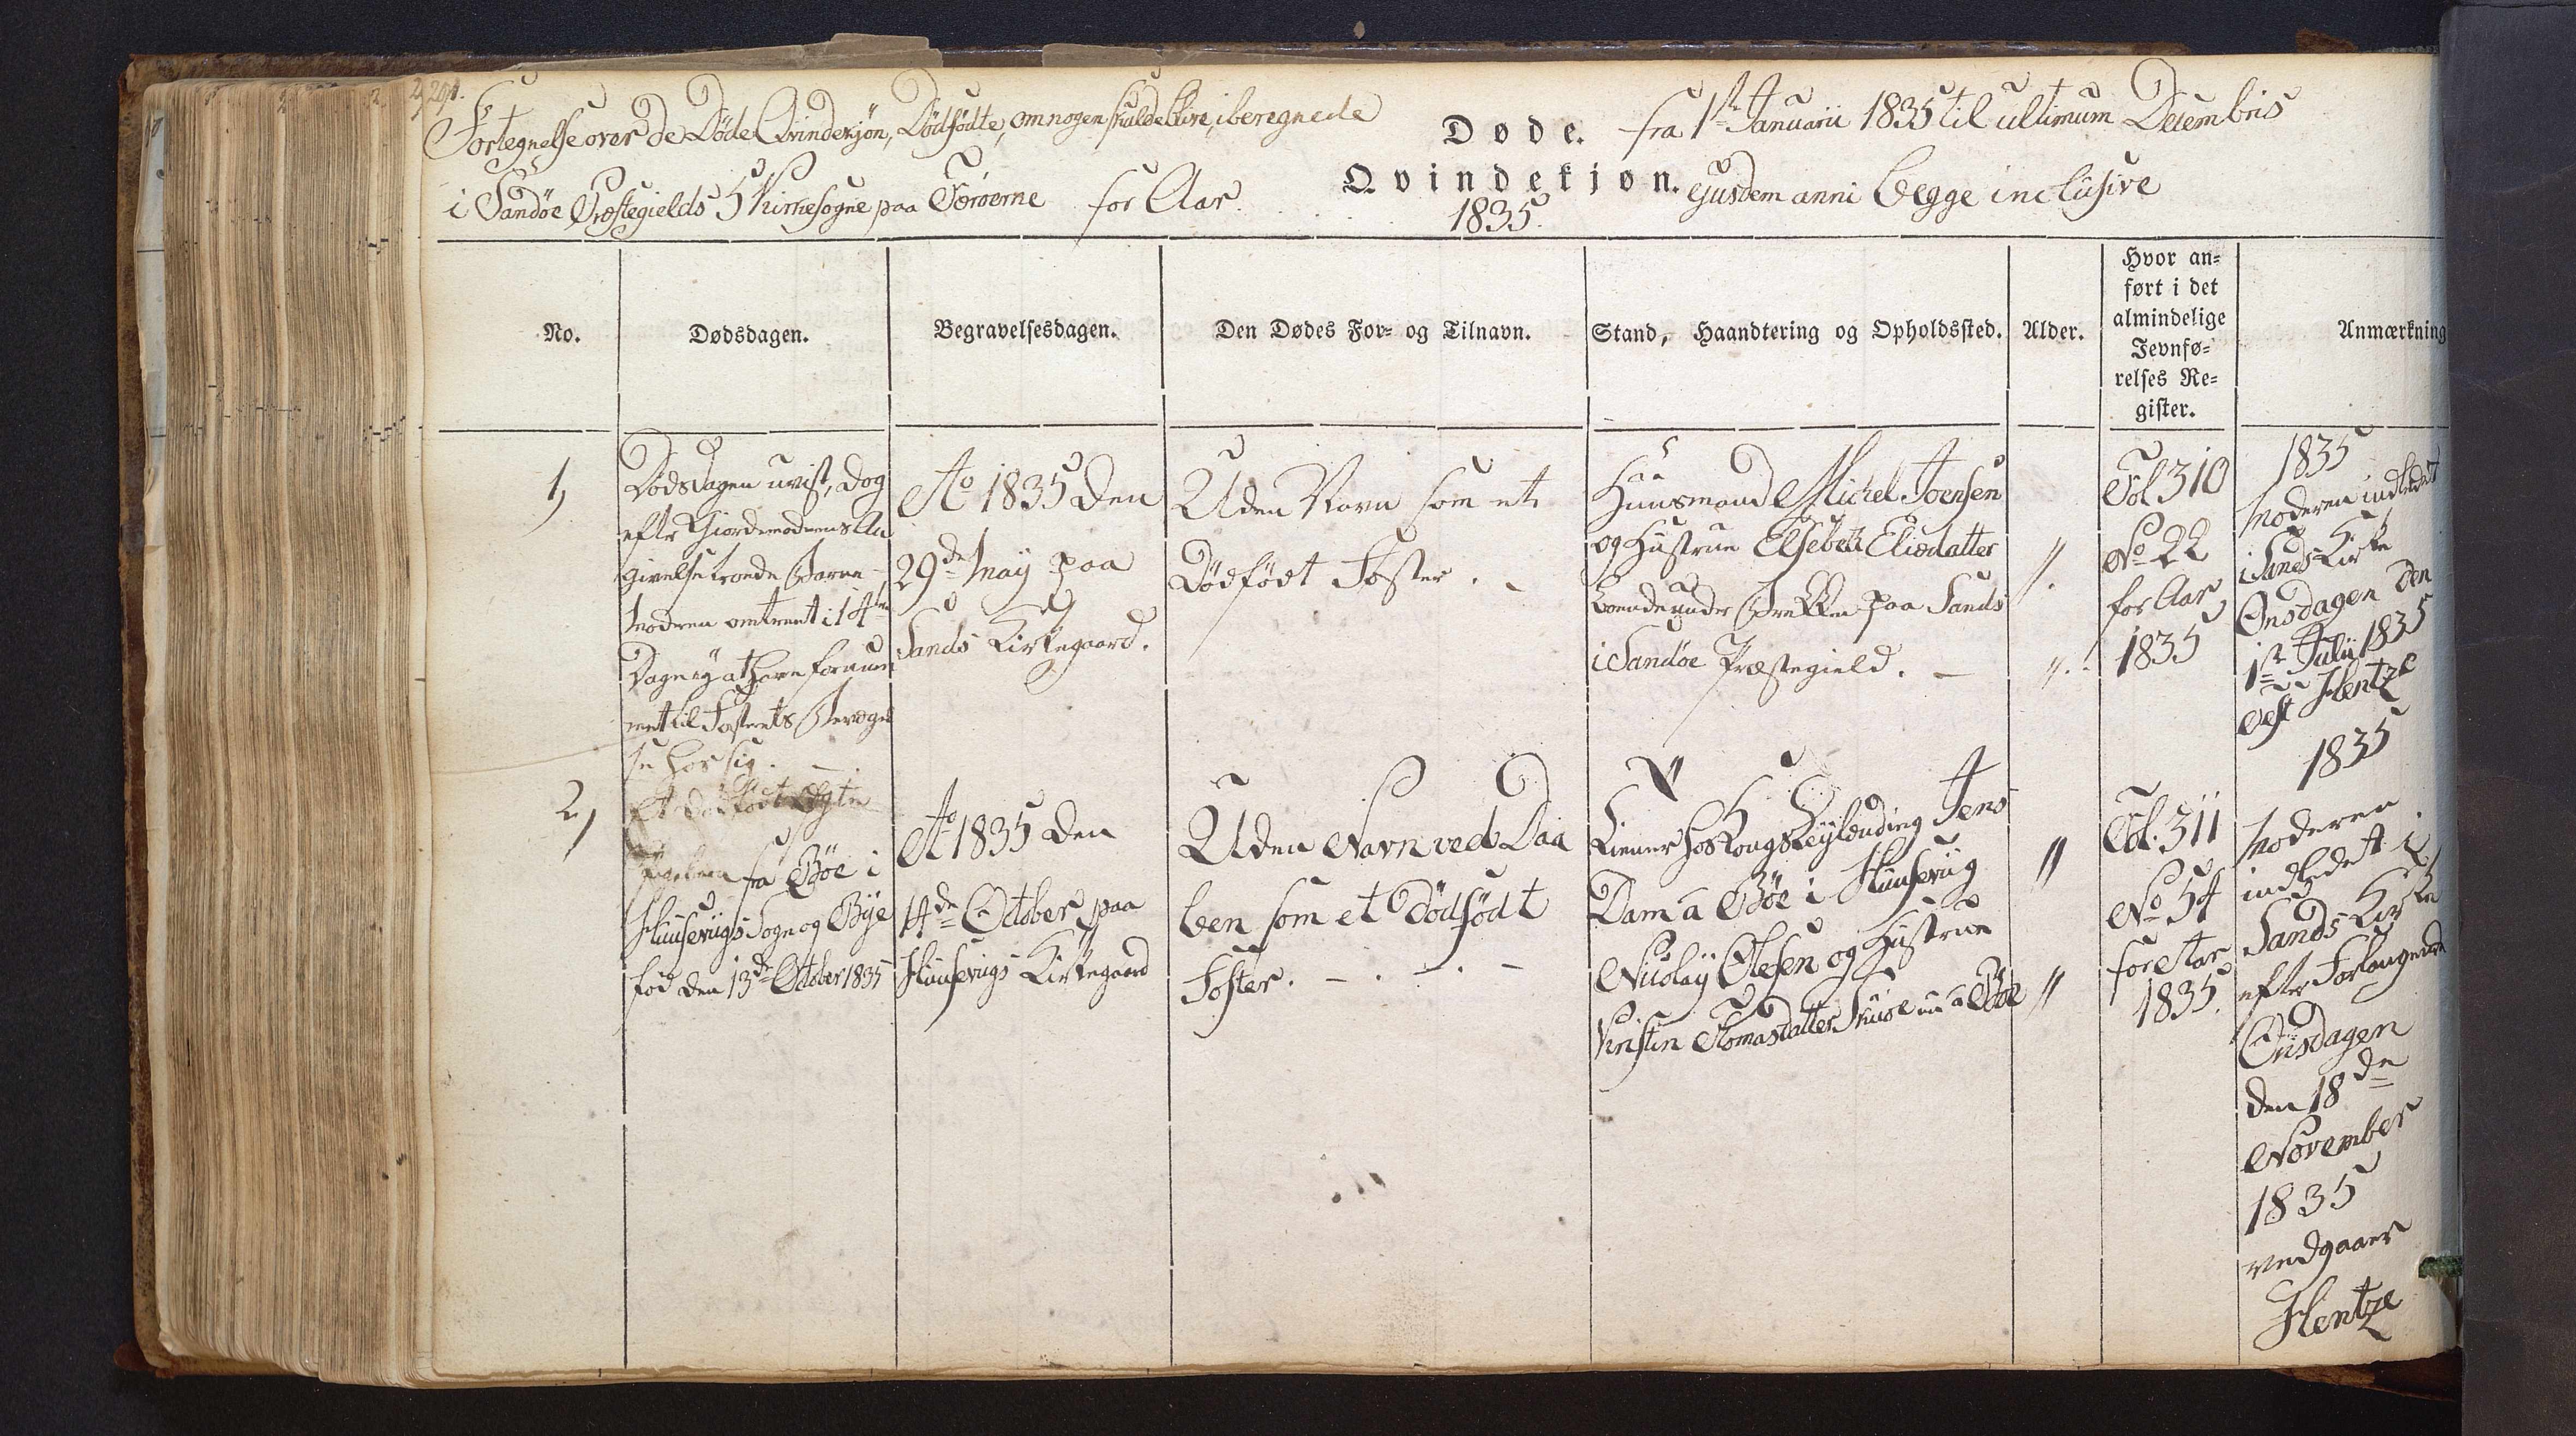 294.
Fortegnelse over de Døde Qvindekjøn, Dødfødte, om nogen skulde blive, iberegnede
i Sandøe Præstegields 5 Kirkesogne paa Færøerne for Aar
Døde.
Qvindekjøn.
1835.
fra 1ste Januarii 1835 til ultimum Decembris
ejusdem anni begge inclusive
No.
Dødsdagen.
Begravelsesdagen.
Den Dødes For- og Tilnavn.
Stand, Haandtering og Opholdssted.
Alder.
Hvor an=
ført i det
almindelige
Jevnfø=
relses Re=
gister.
Anmærkning
1,
Dødsdagen uvist, dog
efter Giordemoderens An
givelse troede Barne-
Moderen omtrent i 14
Dage ej at have fornum
met til Fosterets Bevægel
se hos sig.
Ao 1835 den
29de May paa
Sands Kirkegaard.
Uden Navn som et
Dødfødt Foster.
Huusmand Michel Joensen
og Hustrue Elsebeth Eliedatter
boende under Brekken paa Sands
i Sandøe Præstegield.
"
"
Fol 310
No 22
for Aar
1835
1835
Moderen indledet
i Sands Kirke
Onsdagen den
1ste Julii 1835
Hentze
2,
Et dødfødt
fra Bøe i
Huusevigs Sogn og Bye
fød den 13de October 1835
Ao 1835 den
14de October paa
Huusevigs Kirkegaard
Uden Navn ved Daa
ben som et Dødfødt
Foster.
Tiener hos Kongsleylænding Jens
Dam a Bøe i Huusevig
Nicolay Olesen og Hustrue
Kristin Thomasdatter a Bøe
"
"
Fol. 311
No 54
for Aar
1835.
1835
Moderen
indledet i
Sands Kirke
efter Forlangende
Onsdagen
den 18de
November
1835
vedgaaer
Hentze